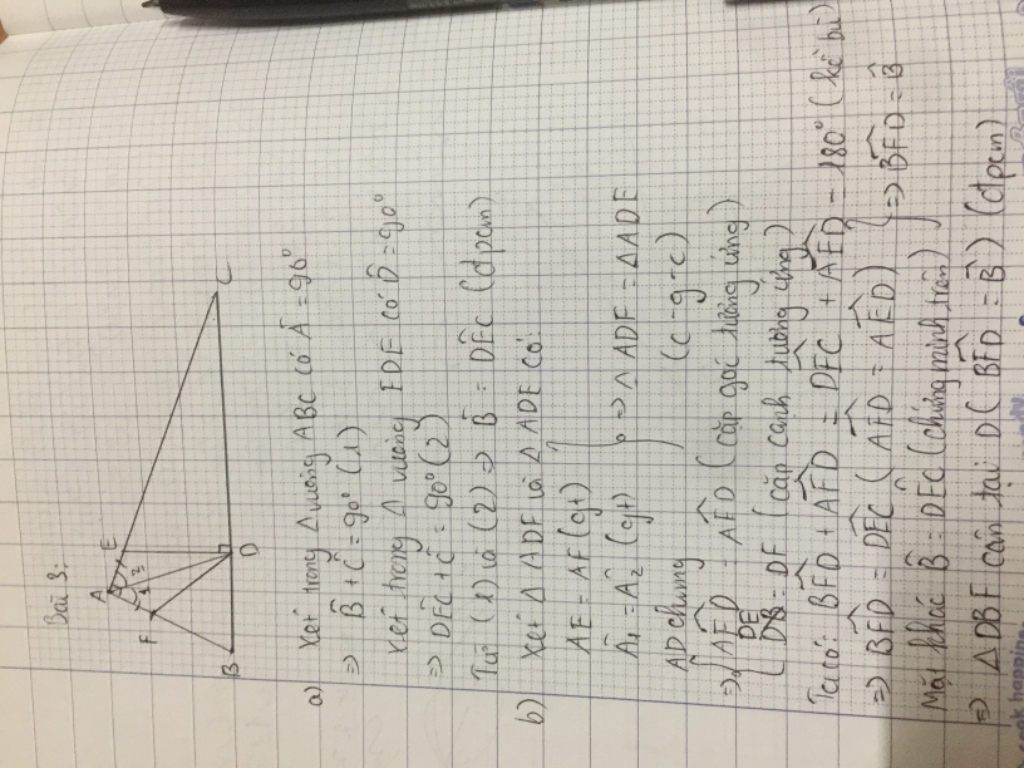 Bài 3:
A
E
F
1 2
B
D
C
a) Xét trong Δ vuông ABC có Â = 90°
=> B̂ + Ĉ = 90° (1)
Xét trong Δ vuông EDE có D̂ = 90°
=> DÊC + Ĉ = 90° (2)
Từ (1) và (2) => B̂ = DÊC (đpcm)
b) Xét Δ ADF và Δ ADE có:
AE = AF (gt)
Â₁ = Â₂ (gt) } => Δ ADF = ΔADE
AD chung (c-g-c)
=> { AF̂D = AÊD (cặp góc tương ứng)
DE = DF (cặp cạnh tương ứng)
Ta có: BF̂D + AF̂D = DÊC + AÊD = 180° (kề bù)
=> BF̂D = DÊC (AF̂D = AÊD)
Mặt khác B̂ = DÊC (chứng minh trên) } => BF̂D = B̂
=> ΔDBF cân tại D (BF̂D = B̂) (đpcm)